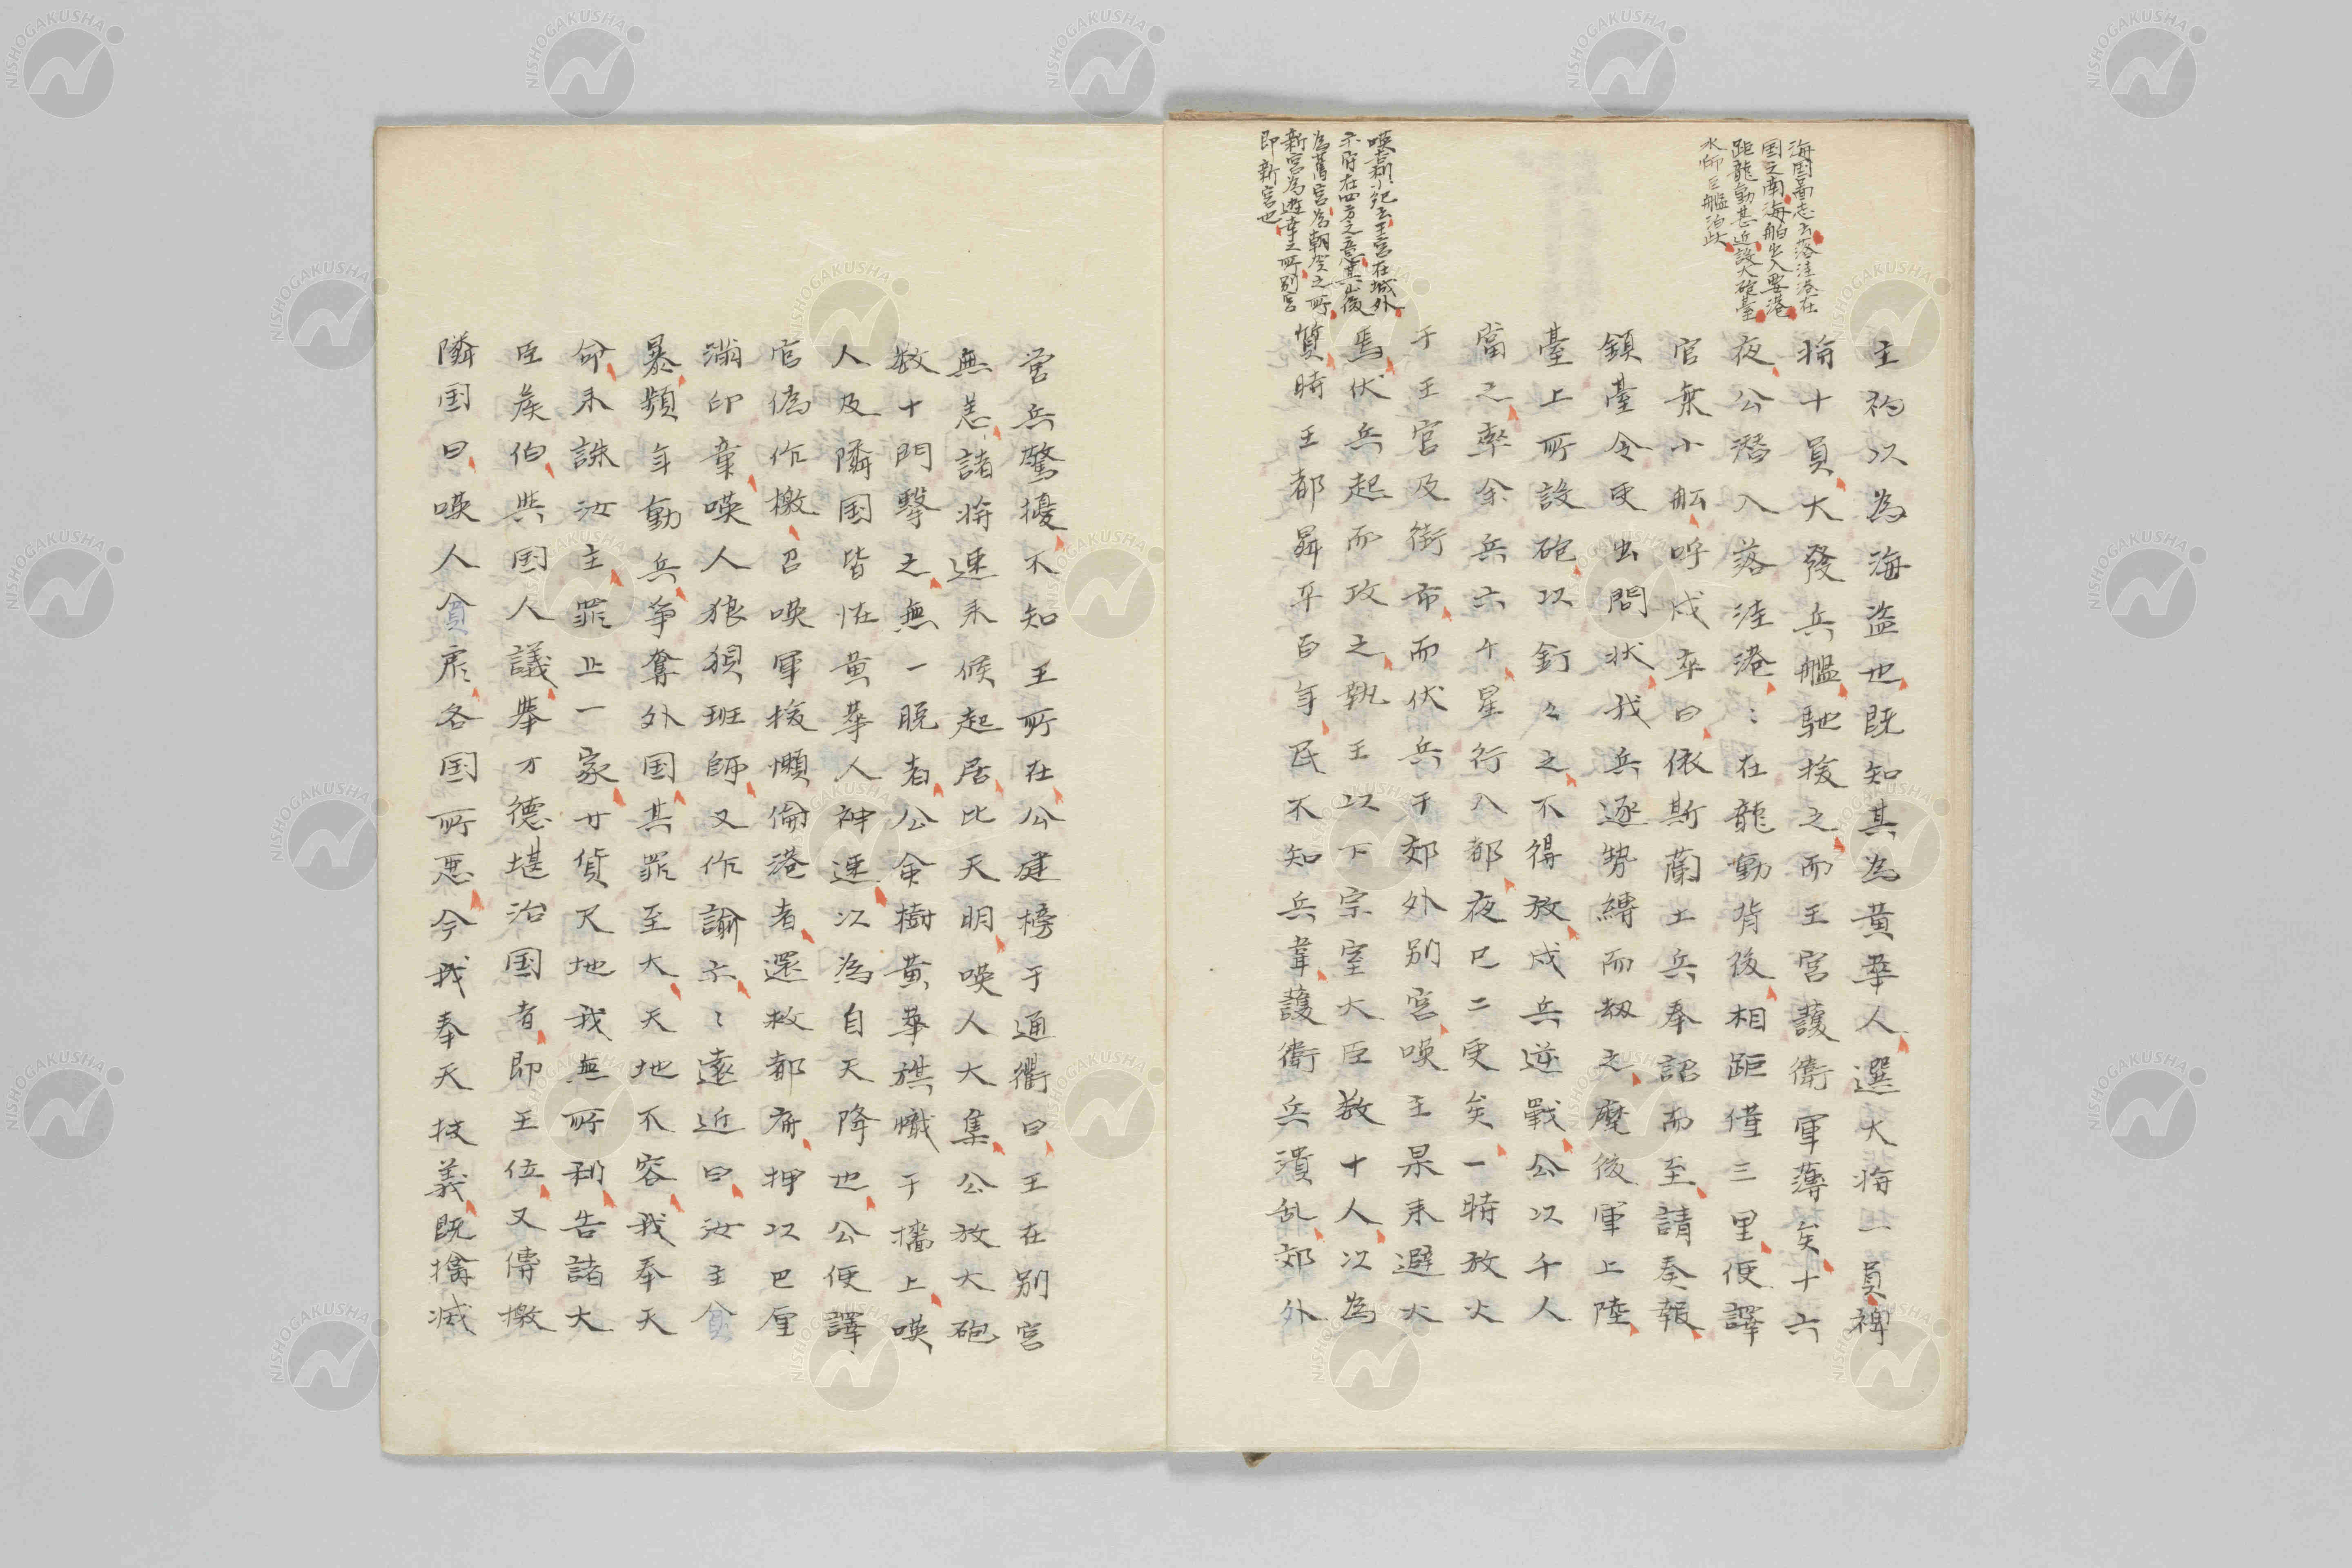 海国啚志云落洼港在
国之南海舶出入要港
距龍動甚近設大砲臺
水師巨艦泊此
主初以為海盗也既知其為黄華人選大将一員裨
将十員大發兵艦馳援之而王宮護衛軍薄矣十六
夜公潜入落洼港〻在龍動背後相距僅三里便譯
官乗小舩呼戍卒曰依斯蘭土兵奉詔而至請奏報
鎮臺令吏出問状我兵逐勢縛而刼之麾後軍上陸
臺上所設砲以釘〻之不得放戍兵逆戰公以千人
當之率余兵六千星行入都夜已二更矣一時放火
于王宮及街市而伏兵于郊外別宮暎王果来避火
焉伏兵起而攻之執王以下宗室大臣数十人以為
質時王都昇平百年民不知兵革護衛兵潰乱郊外
暎 小紀云王宮在城外
為舊宮為朝賀之所
新宮為遊幸之所別宮
即新宮也
営兵驚擾不知王所在公建榜于通衢曰王在別宮
無恙諸将速来候起居比天明暎人大集公放大砲
数十門擊之無一脱者公命樹黄華旗幟于檣上暎
人及隣国皆怪黄華人神速以為自天降也公便譯
官偽作檄召暎軍援懶倫港者還救都府押以巴厘
満印章暎人狼狽班師又作諭示〻遠近曰汝主貪
暴頻年動兵争奪外国其罪至大天地不容我奉天
命来誅汝主罪止一家廿貨尺地我無所利告諸大
臣矦伯與国人議舉才德堪治国者即王位又傳檄
隣国曰暎人貪戻各国所悪今我奉天杖義既擒滅